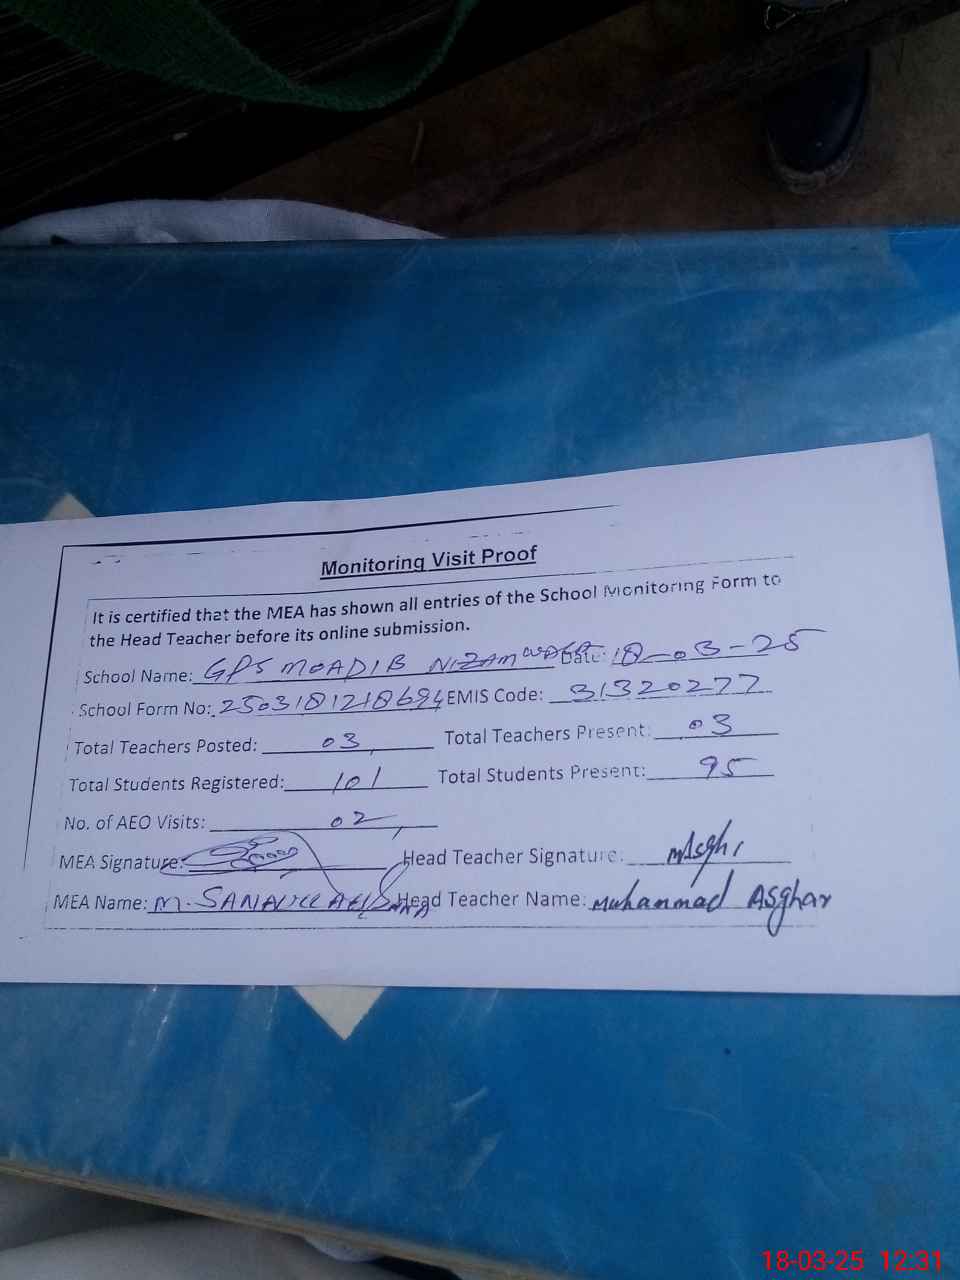 Monitoring Visit Proof
It is certified that the MEA has shown all entries of the School Monitoring Form to
the Head Teacher before its online submission.
School Name: GPS MOADIB NIZAM Date: 18-03-25
School Form No: 2503181218694 EMIS Code: 31320277
Total Teachers Posted: 03 Total Teachers Present: 03
Total Students Registered: 101 Total Students Present: 95
No. of AEO Visits: 02
MEA Signature: Head Teacher Signature: MAsghr
MEA Name: M. SANAULLAH Head Teacher Name: Muhammad Asghar
18-03-25 12:31